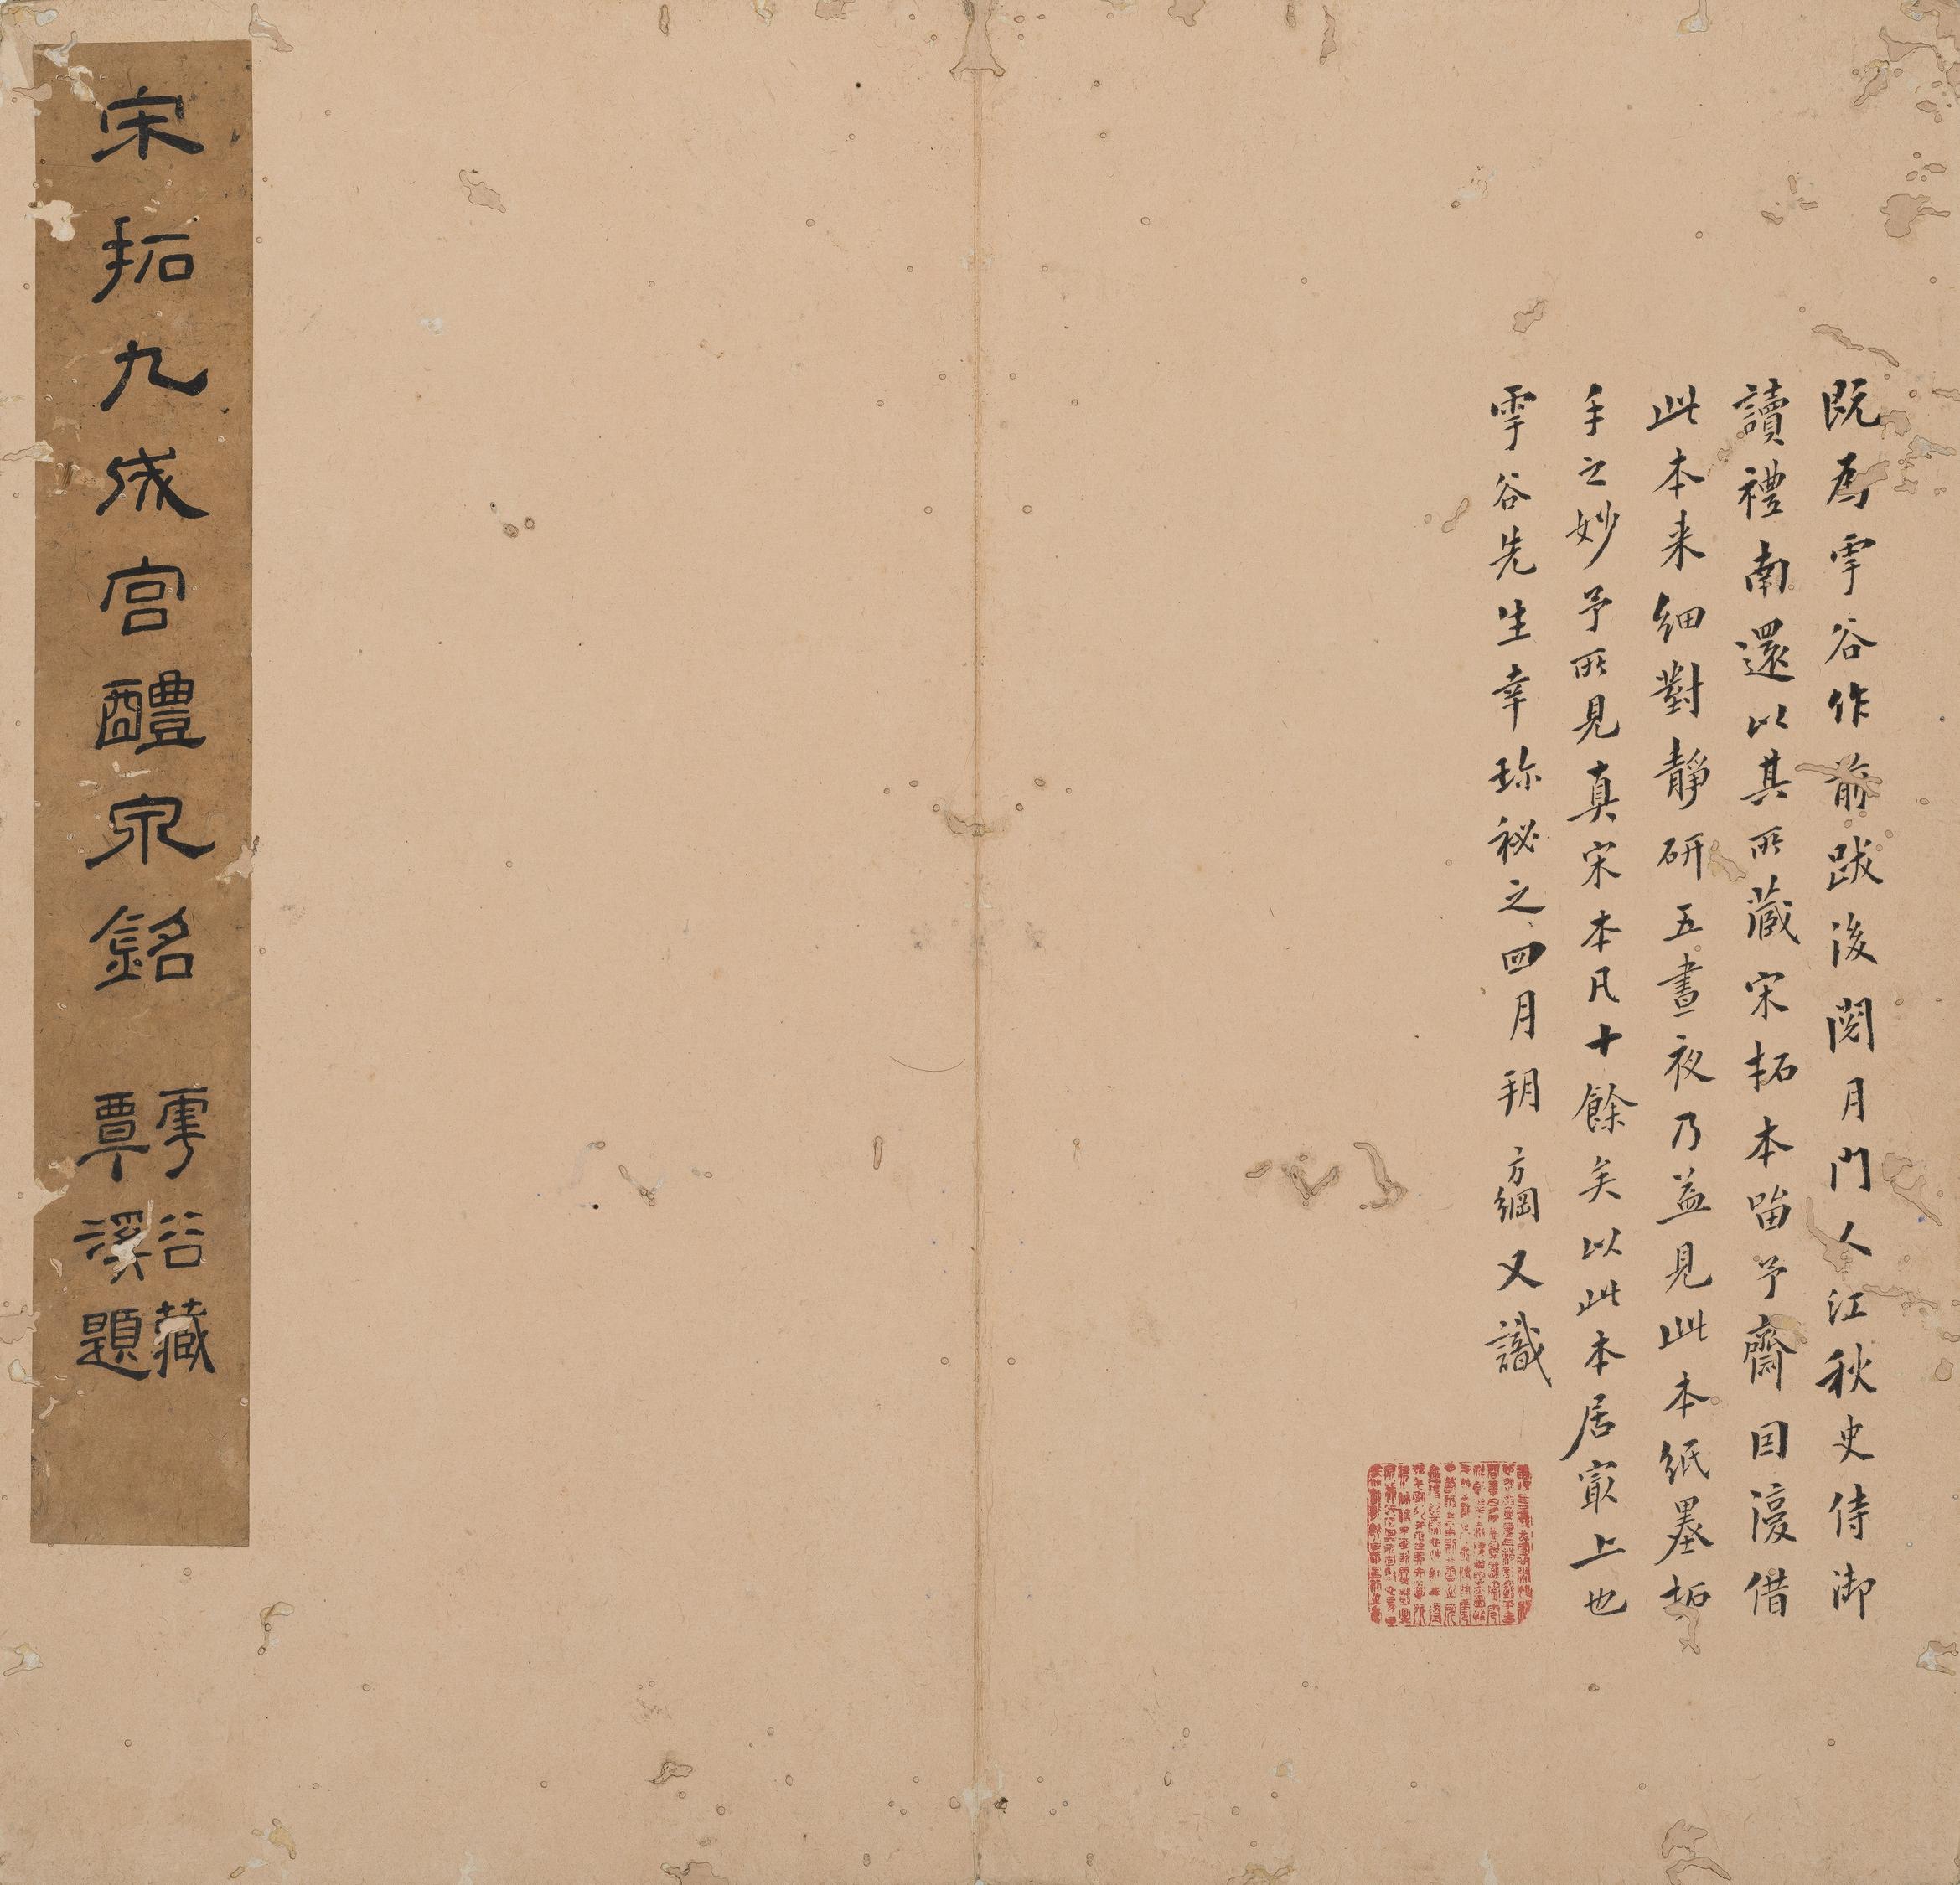 既為雩谷作前跋後閱月門人江秋史侍御
讀禮南還以其所藏宋拓本留予齋因復借
此本来細對靜研五晝夜乃益見此本紙墨拓
手之妙予所見真宋本凡十餘矣以此本居㝡上也
雩谷先生幸珎祕之四月朔方綱又識
宋拓九成宮醴泉銘
雩谷藏
覃溪題